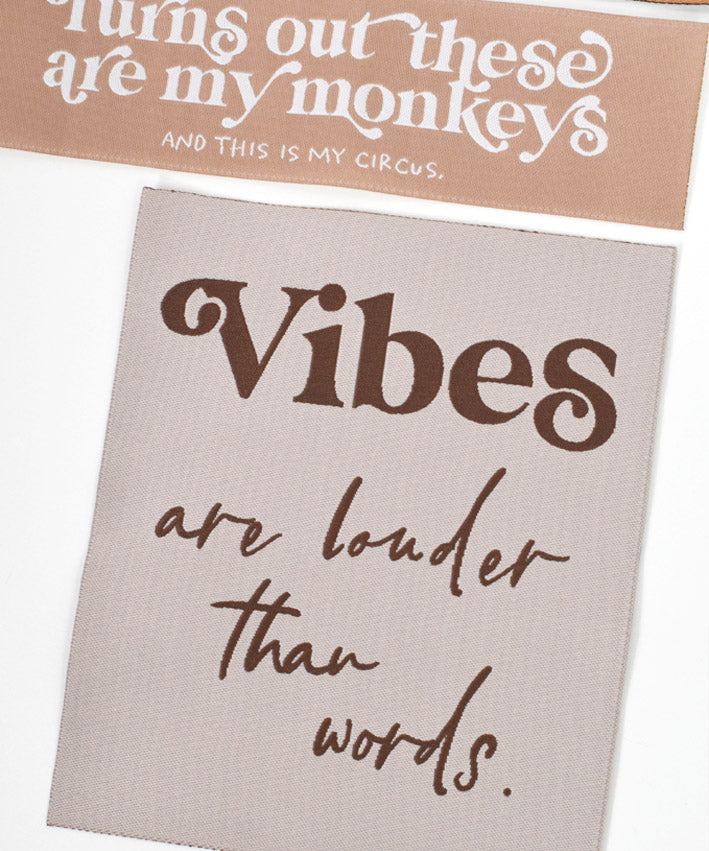 Turns out these
are my monkeys
AND THIS IS MY CIRCUS.
Vibes
are louder
than
words.